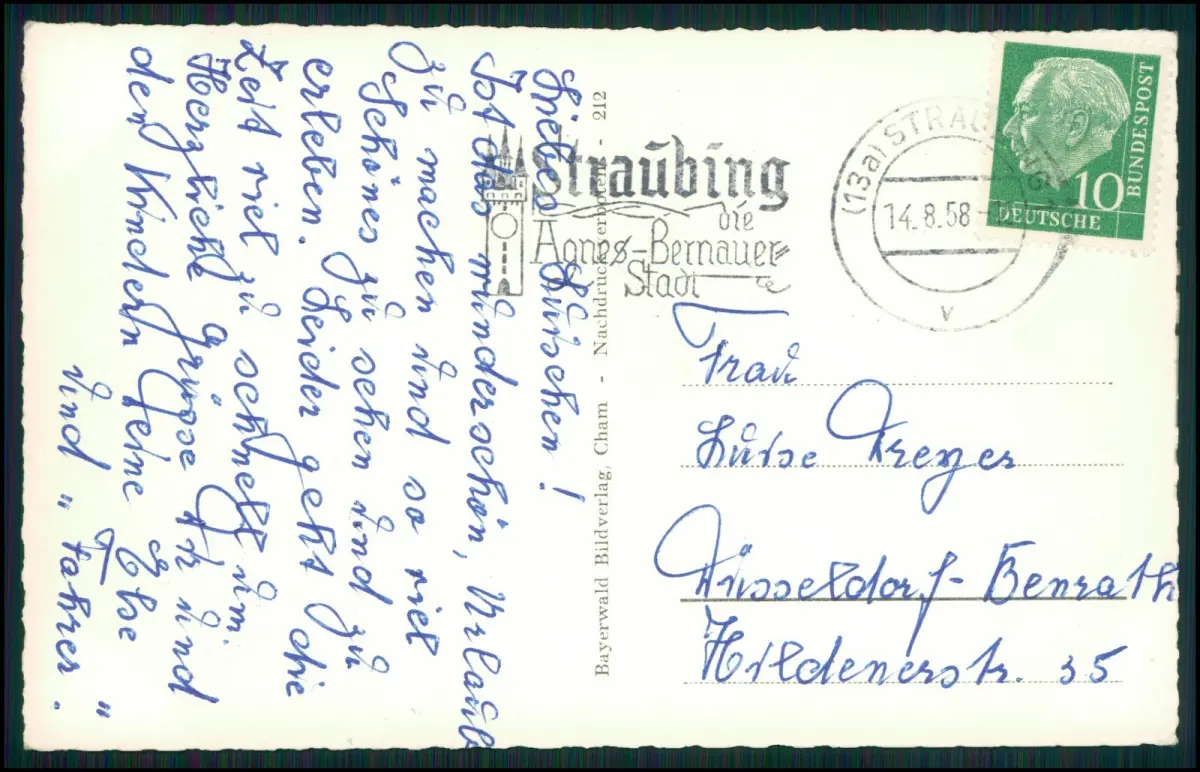 Liebes Luischen!
Ist das wunderschön, Urlaub
zu machen und so viel
Schönes zu sehen und zu
erleben. Leider geht die
Zeit viel zu schnell um.
Herzliche Grüsse Dir und
den Kindern Deine Else
und "Fahrer".
Bayerwald Bildverlag, Cham - Nachdruck verboten - 212
Straubing
die
Agnes-Bernauer-
Stadt
(13a) STRAUBING
14.8.58
v
10
DEUTSCHE
BUNDESPOST
Frau
Luise Dreyer
Düsseldorf-Benrath
Hildenerstr. 35